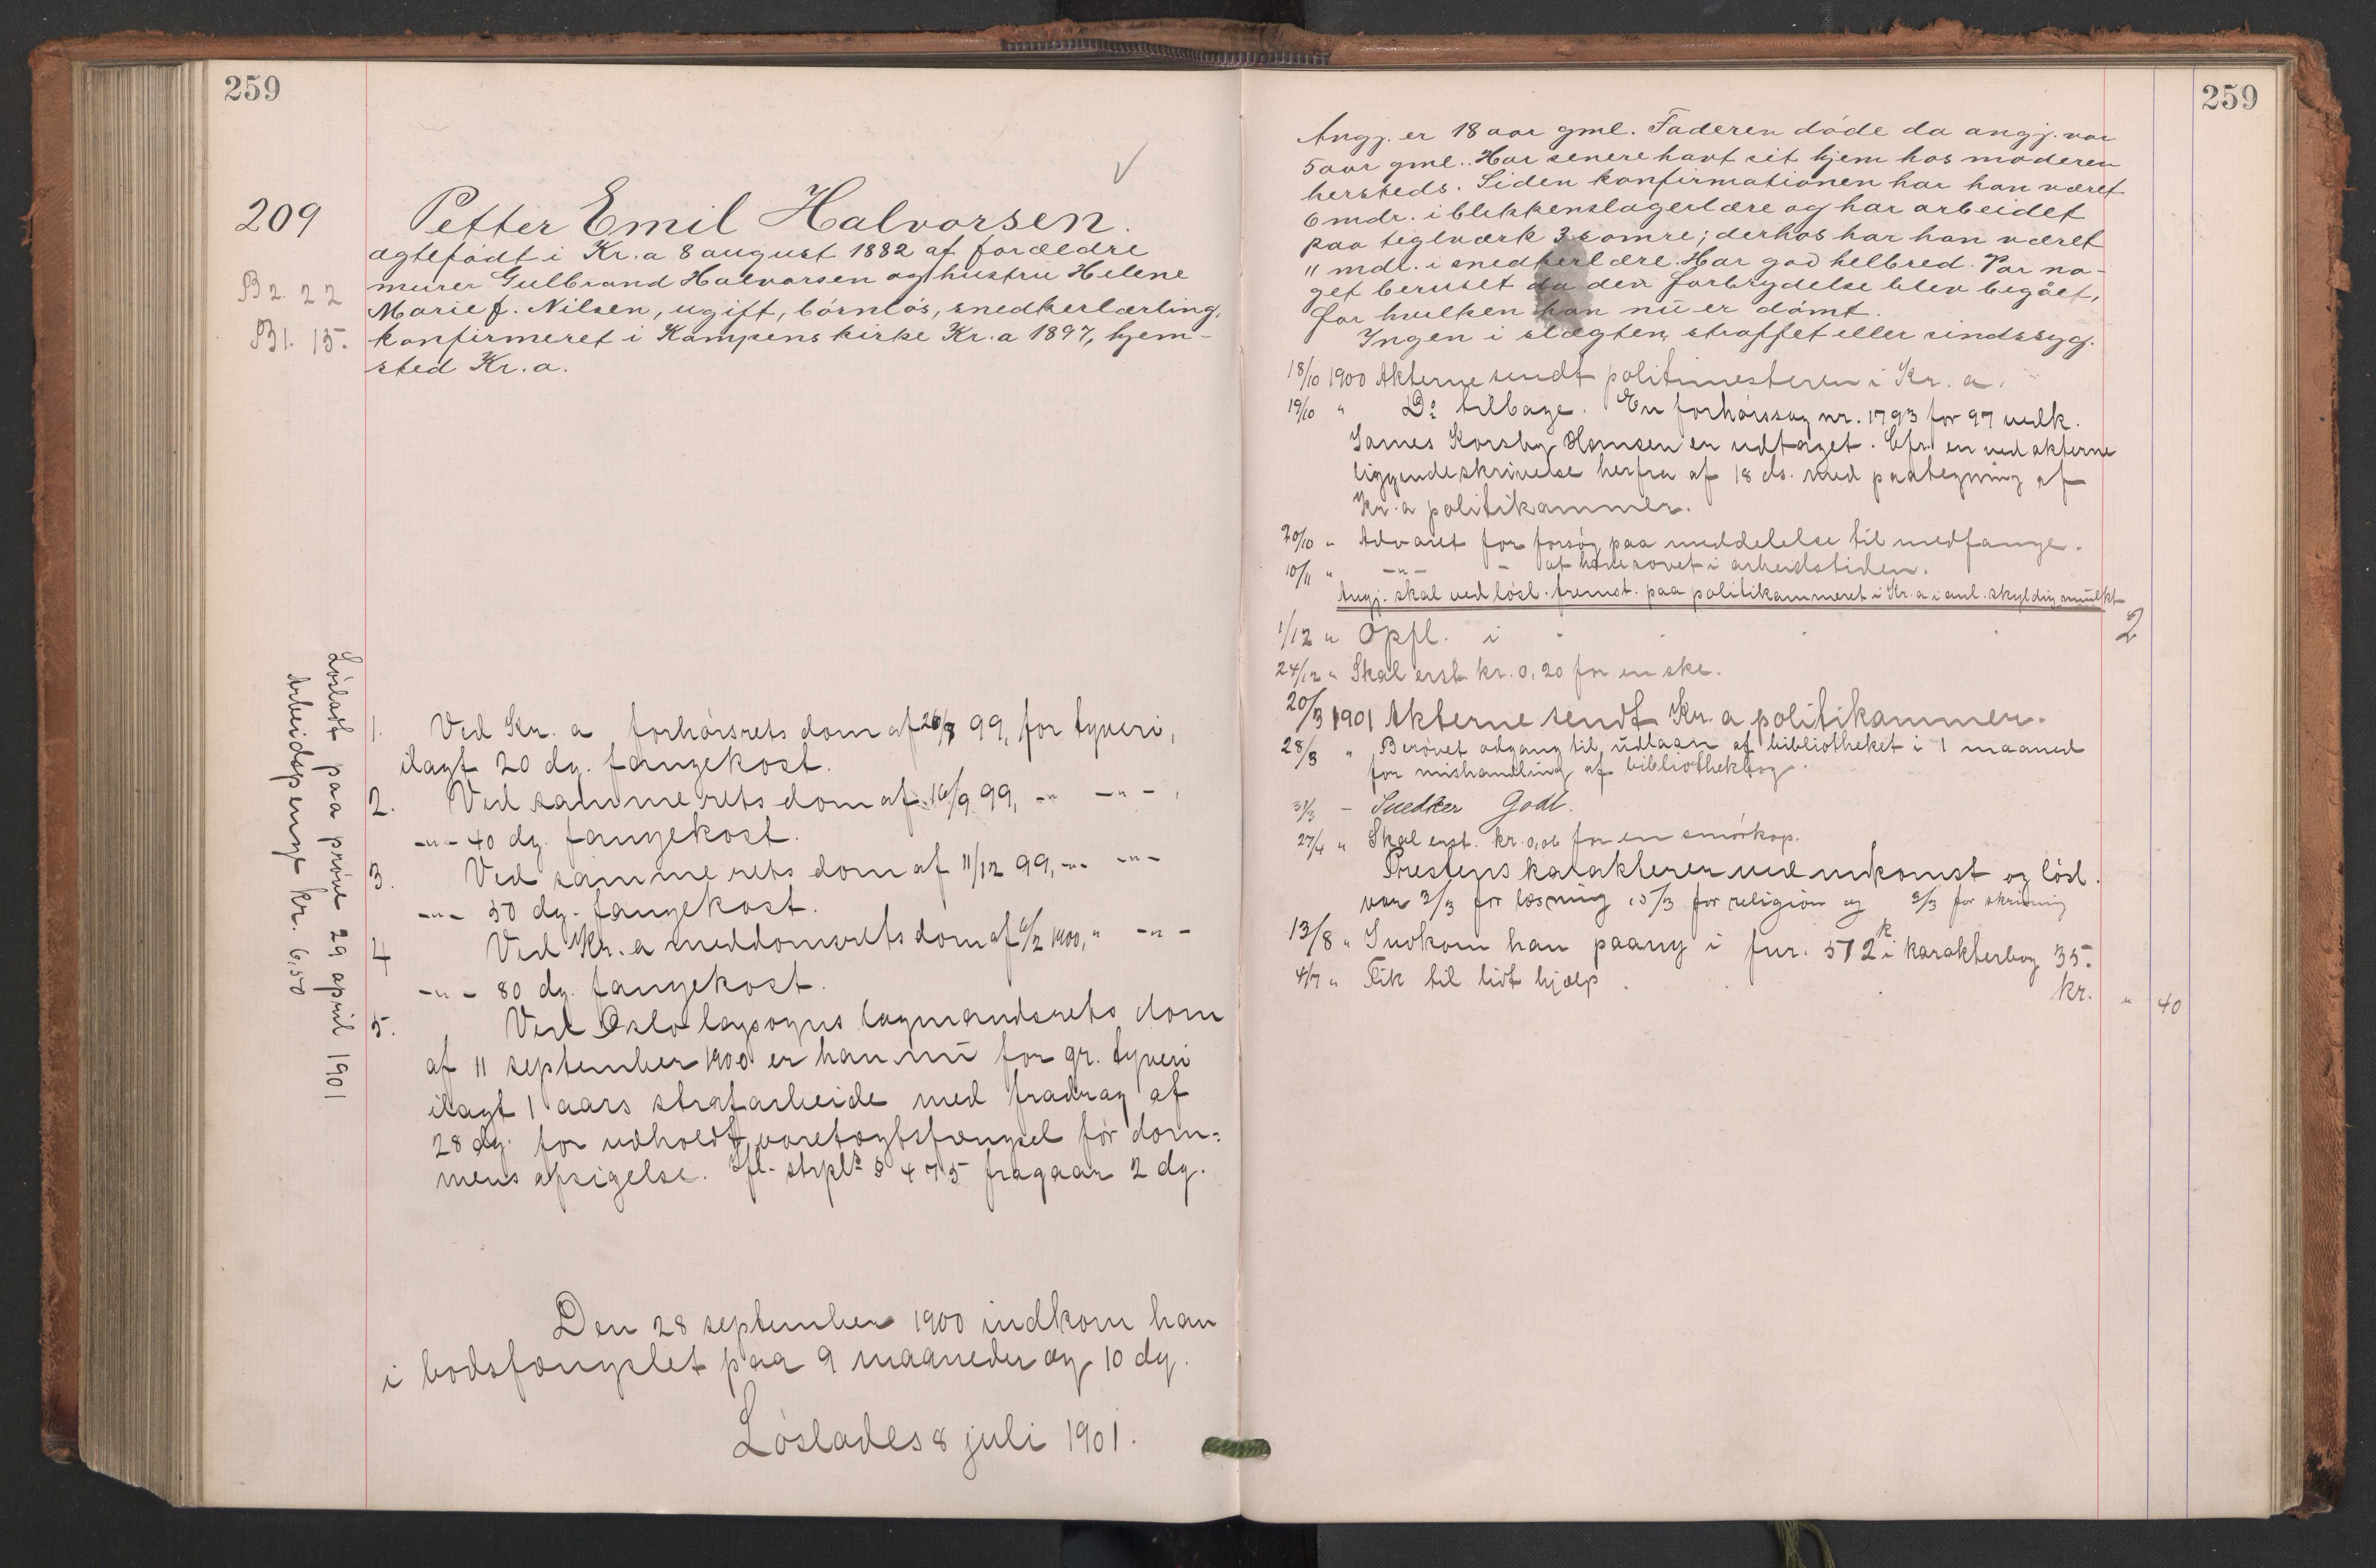 259
209
Petter Emil Halvorsen.
ægtefødt i Kr.a 8 august 1882 af forældre
murer Gulbrand Halvorsen og hustru Helene
B2. 22
Marie f. Nilsen, ugift, børnløs, snedkerlærling,
B1. 15.
konfirmeret i Kampens kirke Kr.a 1897, hjem-
sted Kr.a.
Løsladt paa prøve 29 april 1901
Arbeidspenge kr. 6,50
1. Ved Kr.a forhørsrets dom af 99, for tyveri,
ilagt 20 dg. fangekost.
2. Ved samme rets dom af 16/9 99, -"- -"-,
-"- 40 dg. fangekost.
3. Ved samme rets dom af 11/12 99, -"- -"-
-"- 50 dg. fangekost.
4 Ved Kr.a meddomsrets dom af 6/2 1900, " -"-
-"- 80 dg. fangekost.
5. Ved Oslo lagsogns lagmandsrets dom
af 11 september 1900 er han nu for gr. tyveri
ilagt 1 aars strafarbeide med fradrag af
28 dg. for udholdt varetægtsfængsel før dom-
mens afsigelse. Ifl. strpl. § 475 fragaar 2 dg.
Den 28 september 1900 indkom han
i bodsfængslet paa 9 maaneder og 10 dg.
Løslades 8 juli 1901.
259
Angj. er 18 aar gml. Faderen døde da angj. var
5 aar gml. Har senere havt sit hjem hos moderen
hersteds. Siden konfirmationen har han været
6 mdr. i blikkenslagerlære og har arbeidet
paa teglværk 3 somre; derhos har han været
11 mdr. i snedkerlære. Har god helbred. Var no-
get beruset da den forbrydelse blev begået,
for hvilken han nu er dømt.
Ingen i slægten straffet eller sindssyg.
18/10 1900 Akterne sendt politimesteren i Kr.a.
19/10 " Do tilbage. En forhørssag nr. 1793 for 97 vedk.
James Korsby Hansen er udtaget. Cfr. en ved akterne
liggende skrivelse herfra af 18 ds. med paategning af
Kr.a politikammer.
20/10 " Advaret for forsøg paa meddelelse til medfange.
10/11 " -"- - at have sovet i arbeidstiden.
Angj. skal ved løsl. fremst. paa politikammeret i Kr.a i anl. skyldig mulkt
1/12 " Opfl. i 2
24/12 " Skal erst. kr. 0,20 for en ske.
20/3 1901 Akterne sendt Kr.a politikammer.
28/3 " Berøvet adgang til udlaan af bibliotheket i 1 maaned
for mishandling af bibliothekbog.
31/3 - Snedker Godt.
27/4 " Skal erst. kr. 0,06 for en smørkop.
Prestens karakterer ved indkomst og løsl.
var 2/3 for læsning, 5/3 for religion og 2/3 for skrivning
13/8 " Indkom han paany i fnr. 572 i karakterbog 35.
4/7 " Fik til lidt hjælp kr. " 40